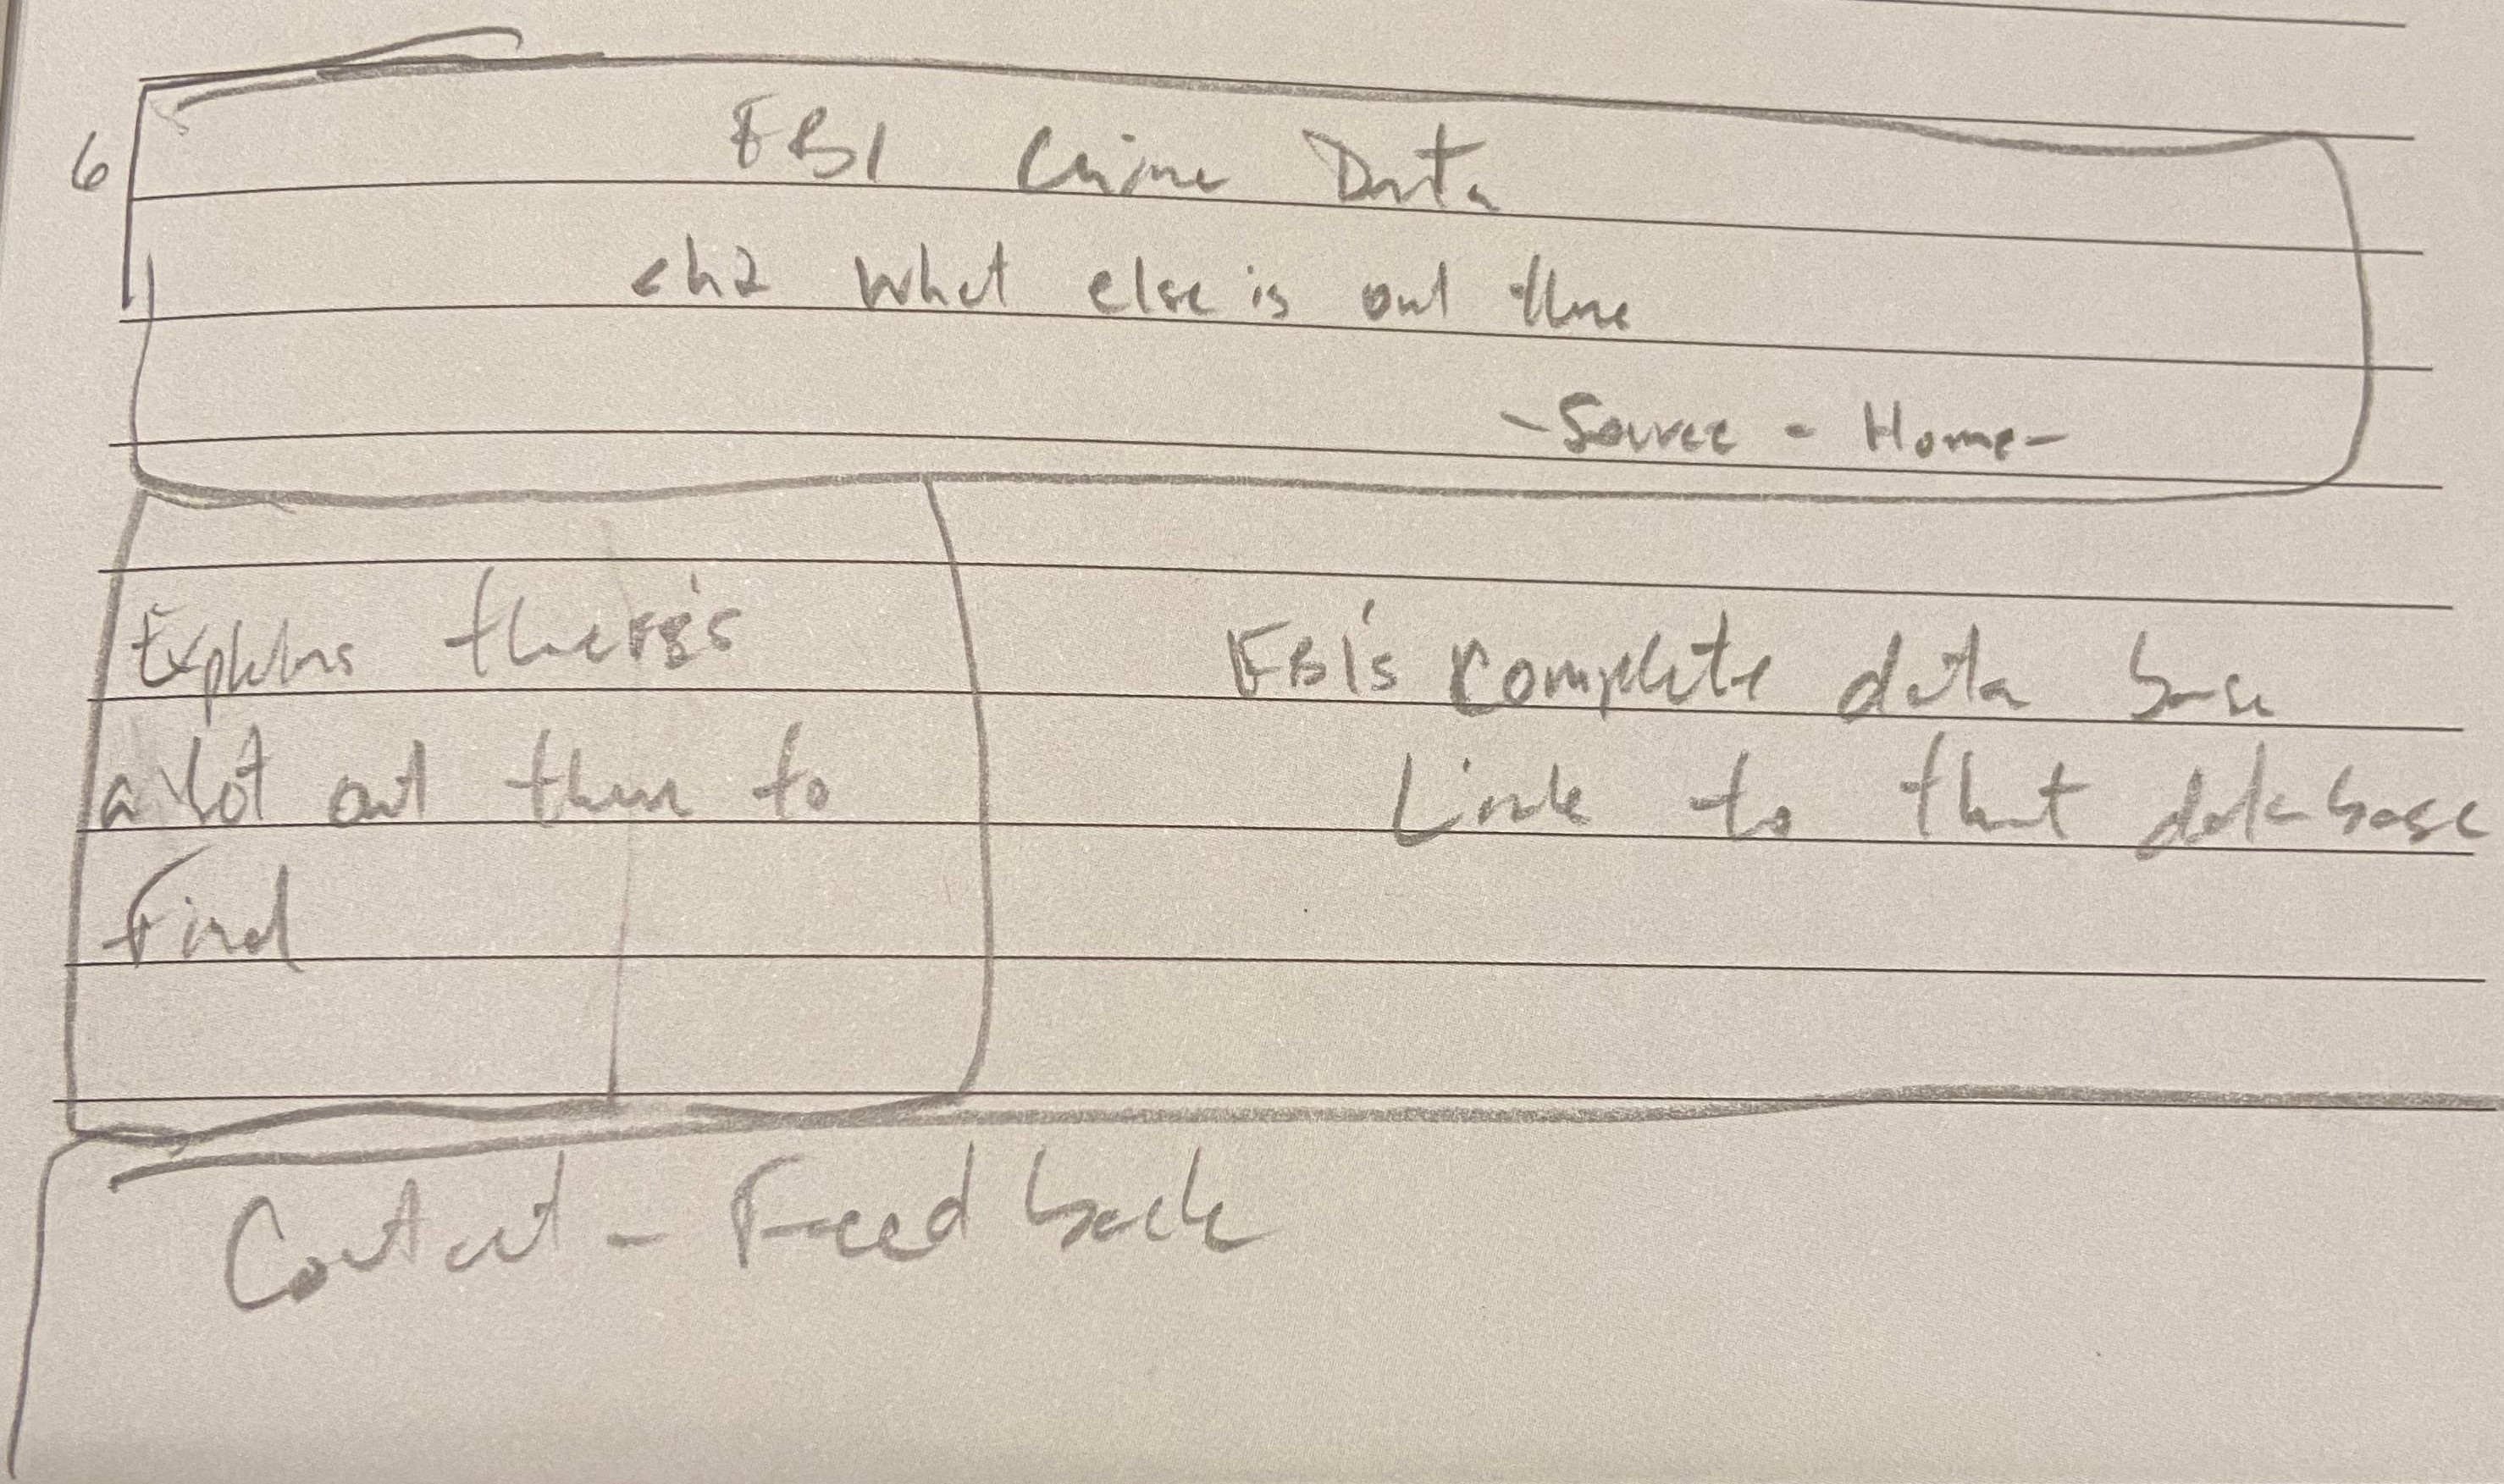 6
FBI Crime Data
ch2 What else is out there
- Source - Home -
Explains there's
a lot out there to
Find
FBI's complete data base
Link to that database
Contact - Feedback